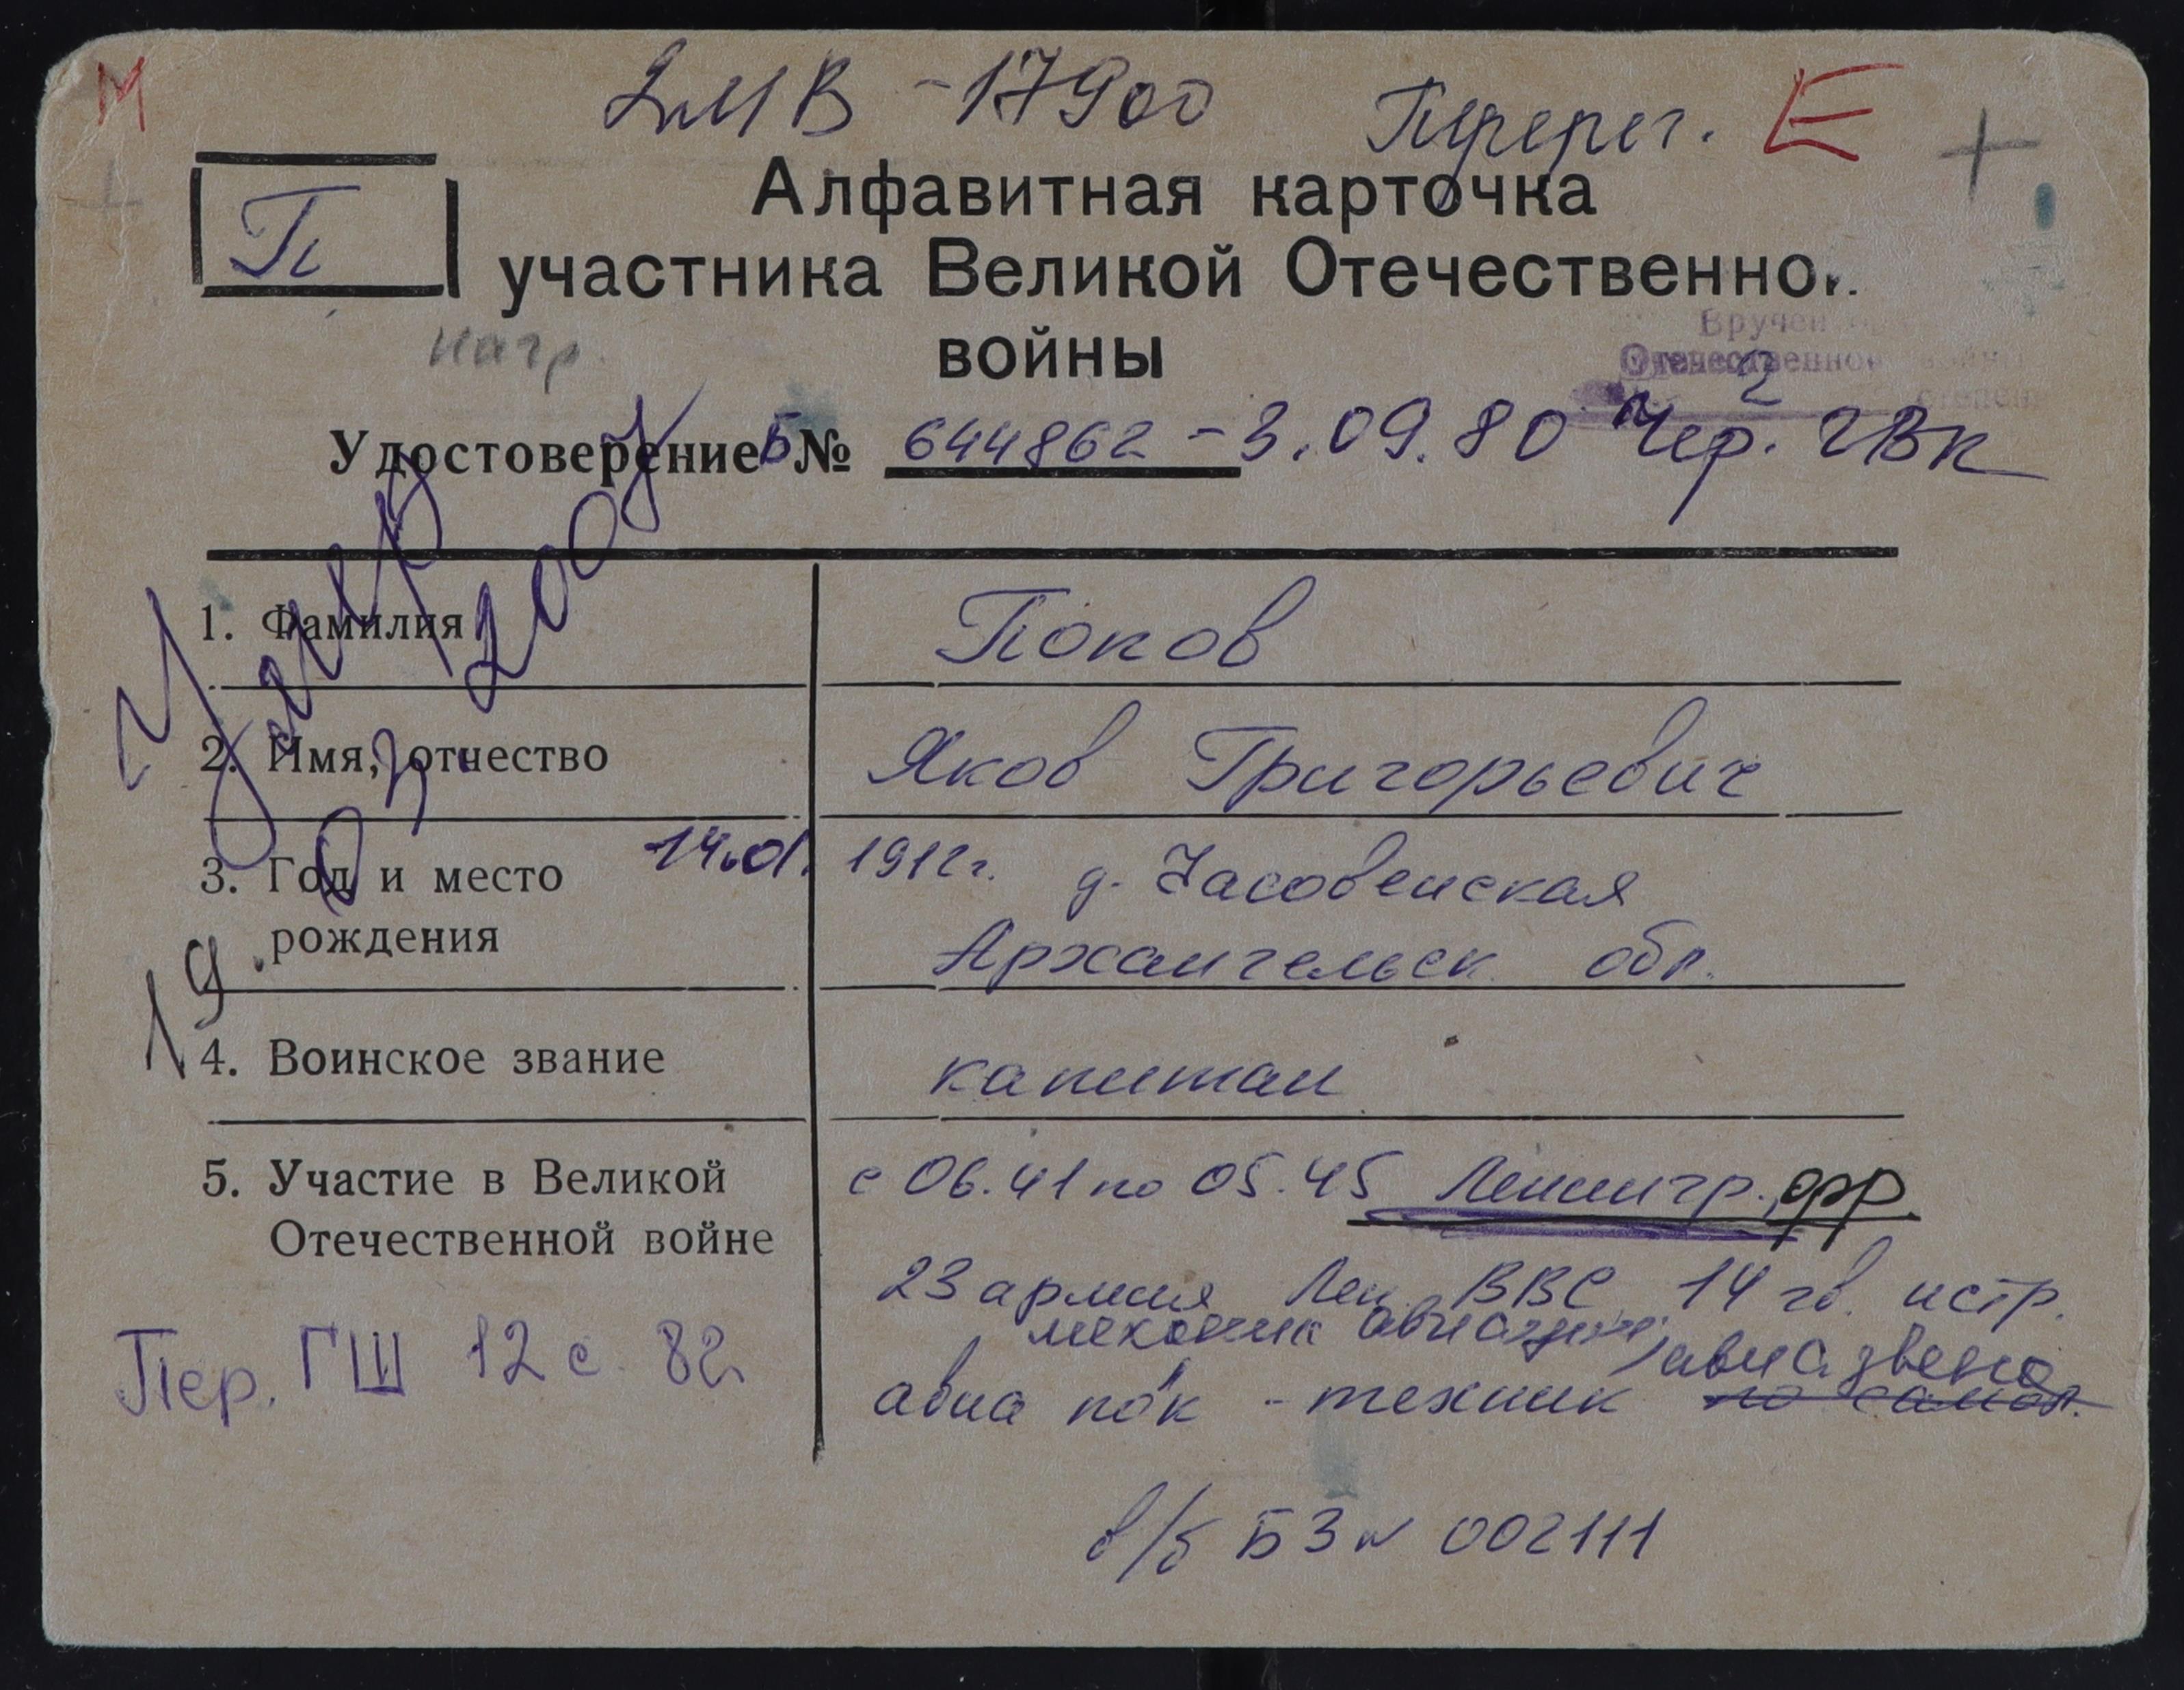 М
ЯМВ - 17900 Перерег. Е +
П
Алфавитная карточка
участника Великой Отечественной
войны
нагр.
Вручен
Отечественной войны
2 степени
Удостоверение Б № 644862 - 3.09.80 Чер. ГВК
Умер
19.03.2007
1. Фамилия Попов
2. Имя, отчество Яков Григорьевич
3. Год и место 14.01. 1912г. д. Часовенская
рождения Архангельск обл.
4. Воинское звание капитан
5. Участие в Великой с 06.41 по 05.45 Ленингр. фр.
Отечественной войне
23 армия Лен. ВВС 14 гв. истр.
механик авиаэск. авиазвена
авиа полк - техник по самол.
Пер. ГШ 12 с. 82
в/б БЗ № 002111